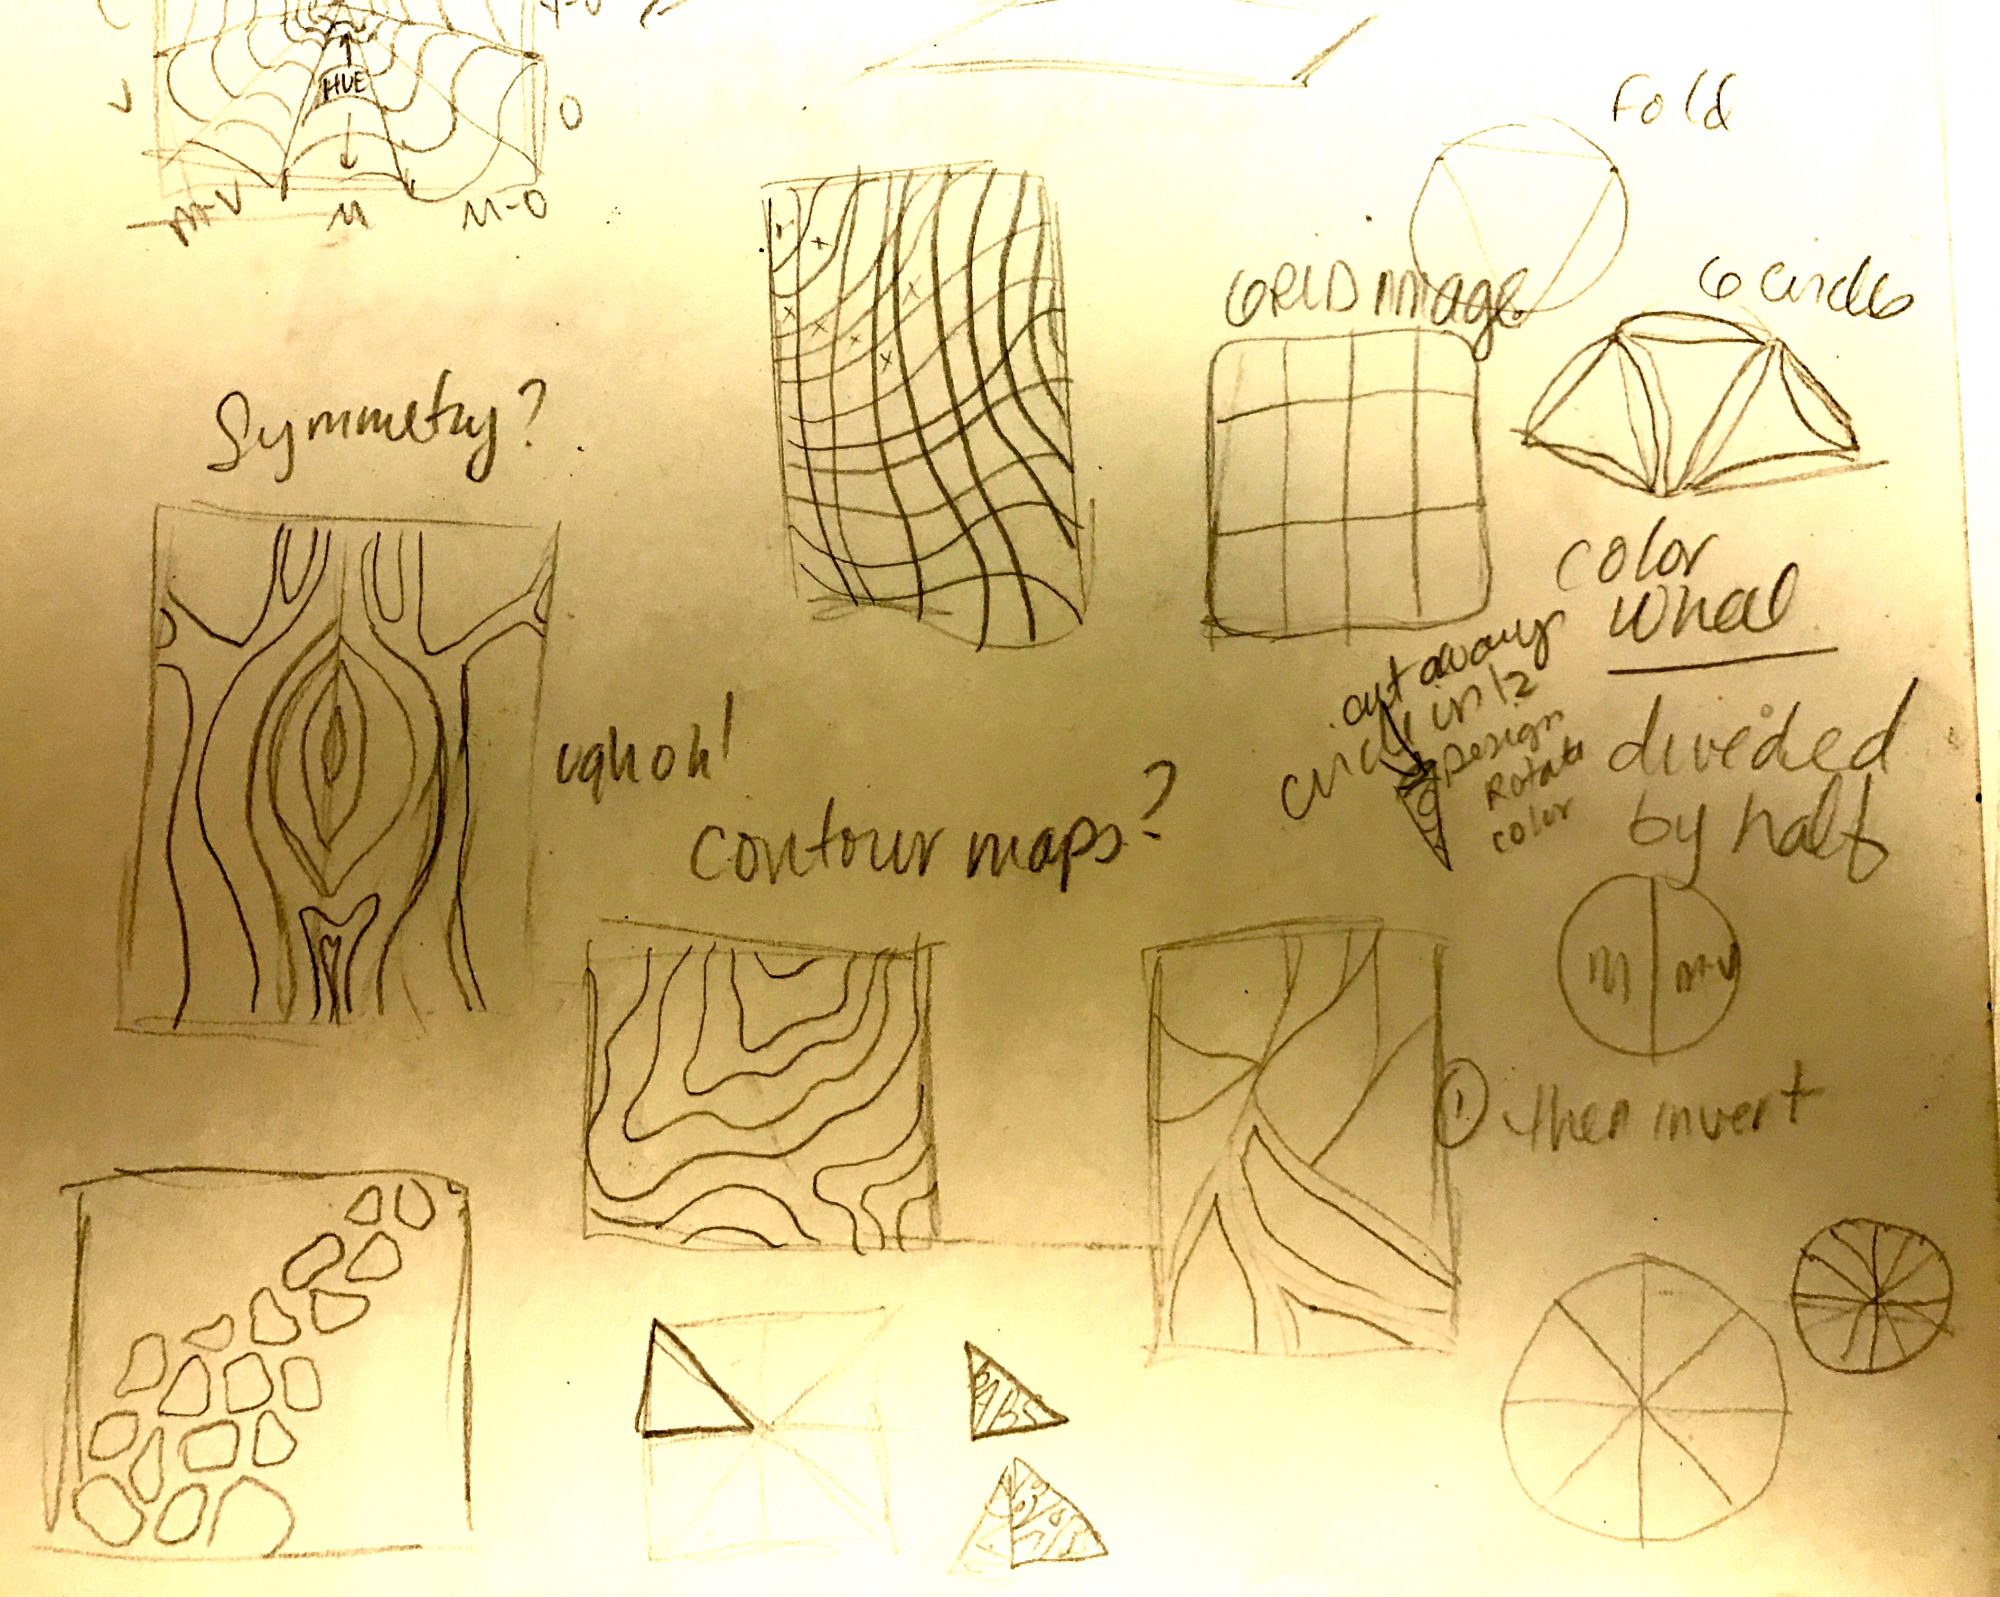 HUE
V
O
M-V
M
M-O
Fold
GRID image
6 circles
Symmetry?
color
wheel
cut away
circle in 12
Design
Rotate
color
divided
by half
ughoh!
contour maps?
M
M-V
① then invert